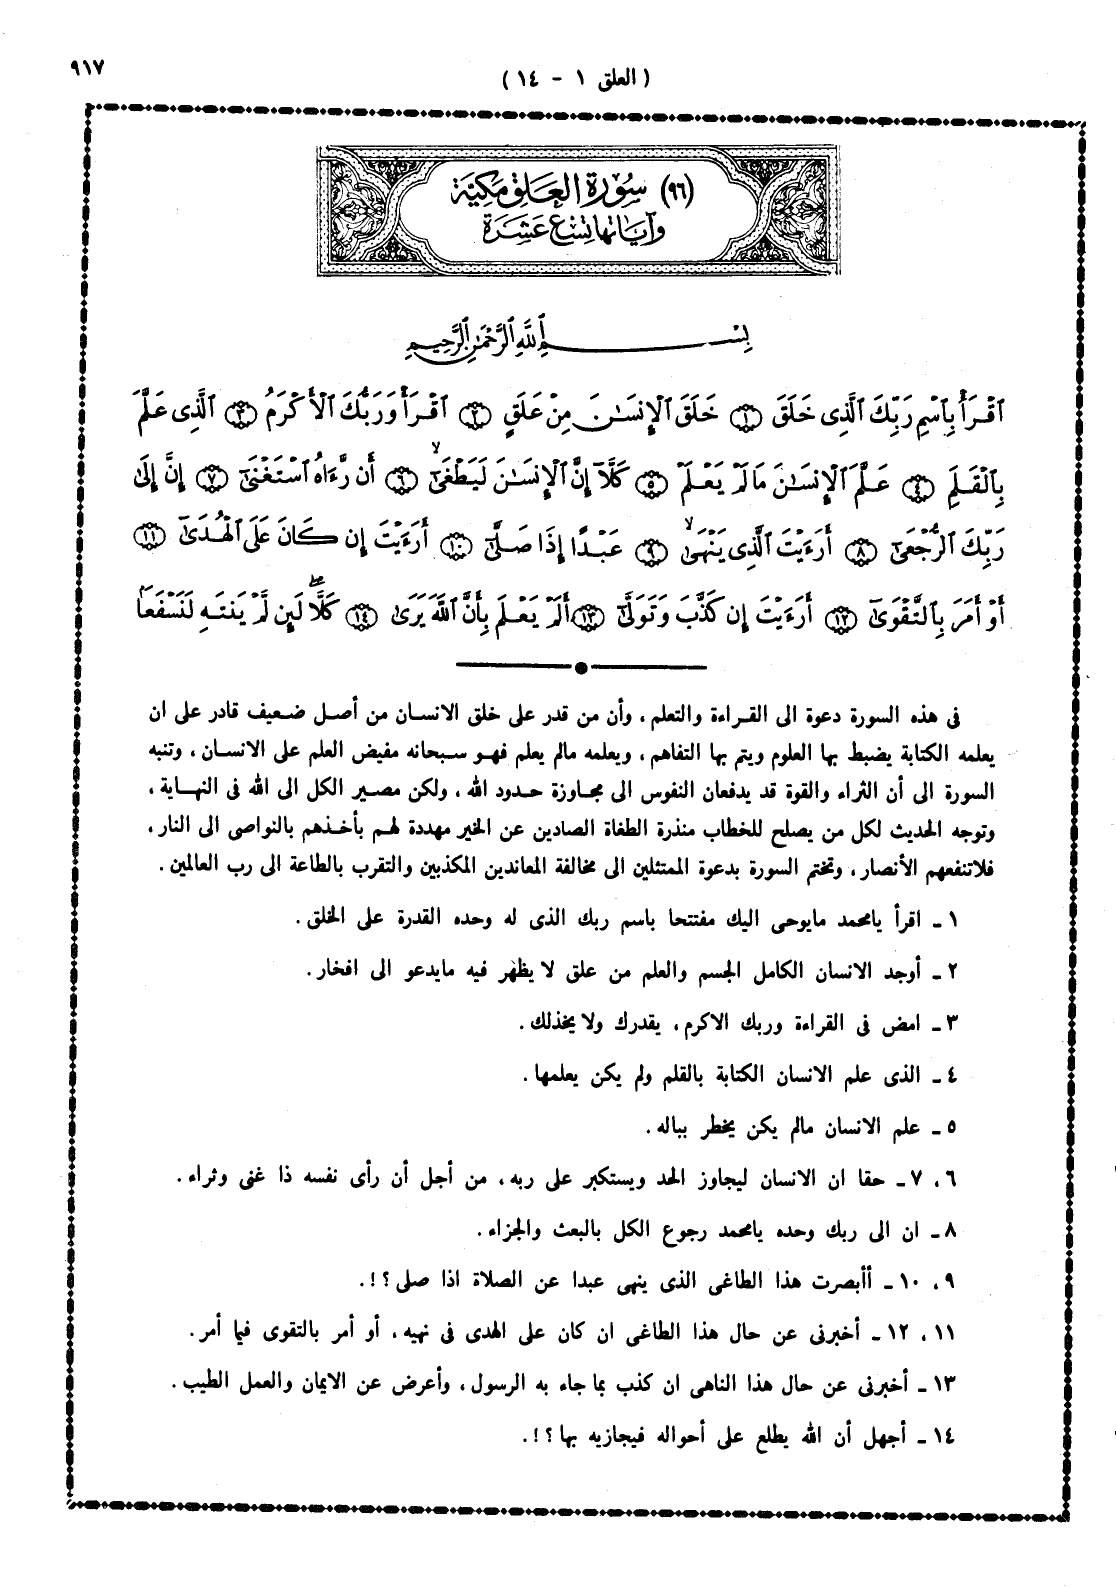 ( العلق ١ - ١٤ )
٩١٧
(٩٦) سُورَةُ العَلَق مَكِيَّة
وَآيَاتُهَا تِسْعَ عَشَرَة
بِسْمِ ٱللَّهِ ٱلرَّحْمَٰنِ ٱلرَّحِيمِ
ٱقْرَأْ بِٱسْمِ رَبِّكَ ٱلَّذِى خَلَقَ ۝١ خَلَقَ ٱلْإِنسَٰنَ مِنْ عَلَقٍ ۝٢ ٱقْرَأْ وَرَبُّكَ ٱلْأَكْرَمُ ۝٣ ٱلَّذِى عَلَّمَ
بِٱلْقَلَمِ ۝٤ عَلَّمَ ٱلْإِنسَٰنَ مَا لَمْ يَعْلَمْ ۝٥ كَلَّآ إِنَّ ٱلْإِنسَٰنَ لَيَطْغَىٰٓ ۝٦ أَن رَّءَاهُ ٱسْتَغْنَىٰٓ ۝٧ إِنَّ إِلَىٰ
رَبِّكَ ٱلرُّجْعَىٰٓ ۝٨ أَرَءَيْتَ ٱلَّذِى يَنْهَىٰ ۝٩ عَبْدًا إِذَا صَلَّىٰٓ ۝١٠ أَرَءَيْتَ إِن كَانَ عَلَى ٱلْهُدَىٰٓ ۝١١
أَوْ أَمَرَ بِٱلتَّقْوَىٰٓ ۝١٢ أَرَءَيْتَ إِن كَذَّبَ وَتَوَلَّىٰٓ ۝١٣ أَلَمْ يَعْلَم بِأَنَّ ٱللَّهَ يَرَىٰ ۝١٤ كَلَّا لَئِن لَّمْ يَنتَهِ لَنَسْفَعًا
فى هذه السورة دعوة الى القراءة والتعلم ، وأن من قدر على خلق الانسان من أصل ضعيف قادر على ان
يعلمه الكتابة يضبط بها العلوم ويتم بها التفاهم ، ويعلمه مالم يعلم فهو سبحانه مفيض العلم على الانسان ، وتنبه
السورة الى أن الثراء والقوة قد يدفعان النفوس الى مجاوزة حدود الله ، ولكن مصير الكل الى الله فى النهاية ،
وتوجه الحديث لكل من يصلح للخطاب منذرة الطغاة الصادين عن الخير مهددة لهم بأخذهم بالنواصى الى النار ،
فلاتنفعهم الأنصار ، وتختم السورة بدعوة الممتثلين الى مخالفة المعاندين المكذبين والتقرب بالطاعة الى رب العالمين .
١ ـ اقرأ يامحمد مايوحى اليك مفتتحا باسم ربك الذى له وحده القدرة على الخلق .
٢ ـ أوجد الانسان الكامل الجسم والعلم من علق لا يظهر فيه مايدعو الى افخار .
٣ ـ امض فى القراءة وربك الاكرم ، يقدرك ولا يخذلك .
٤ ـ الذى علم الانسان الكتابة بالقلم ولم يكن يعلمها .
٥ ـ علم الانسان مالم يكن يخطر بباله .
٦ ، ٧ ـ حقا ان الانسان ليجاوز الحد ويستكبر على ربه ، من أجل أن رأى نفسه ذا غنى وثراء .
٨ ـ ان الى ربك وحده يامحمد رجوع الكل بالبعث والجزاء .
٩ ، ١٠ ـ أأبصرت هذا الطاغى الذى ينهى عبدا عن الصلاة اذا صلى ؟ ! .
١١ ، ١٢ ـ أخبرنى عن حال هذا الطاغى ان كان على الهدى فى نهيه ، أو أمر بالتقوى فيما أمر .
١٣ ـ أخبرنى عن حال هذا الناهى ان كذب بما جاء به الرسول ، وأعرض عن الايمان والعمل الطيب .
١٤ ـ أجهل أن الله يطلع على أحواله فيجازيه بها ؟ ! .